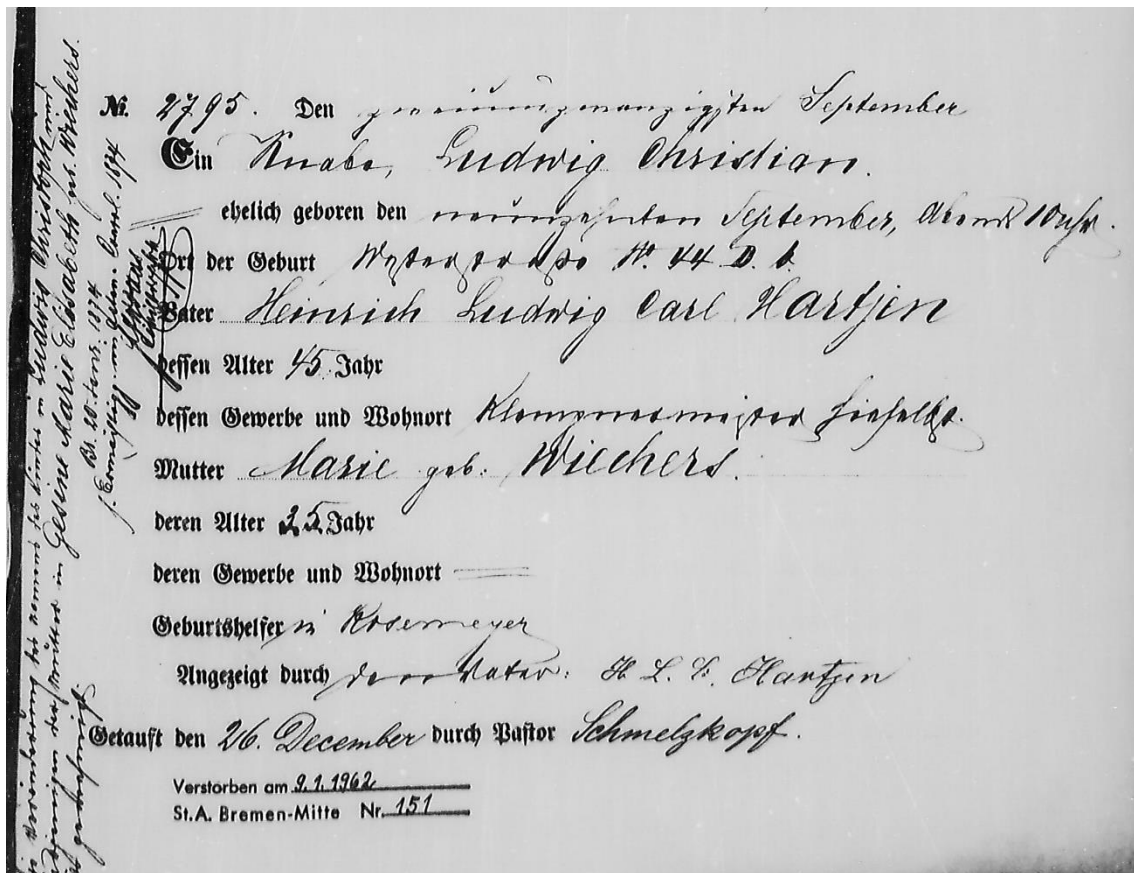 No. 2795. Den zweiundzwanzigsten September
Ein Knabe, Ludwig Christian.
ehelich geboren den neunzehnten September, Abends 10 Uhr.
Ort der Geburt No. 44
Vater Heinrich Ludwig Carl Hartjen
dessen Alter 45 Jahr
dessen Gewerbe und Wohnort Klempnermeister hieselbst.
Mutter Marie geb. Wiechers.
deren Alter 35 Jahr
deren Gewerbe und Wohnort
Geburtshelferin Rosemeyer
Angezeigt durch den Vater: H. L. C. Hartjen
Getauft den 26. December durch Pastor Schmelzkopf.
Verstorben am 9.1.1962
St.A. Bremen-Mitte Nr. 151
Veränderung des Namens des Kindes in Ludwig Christoph und
der Mutter in Gesine Marie Elisabeth geb. Wiechers.
genehmigt.
Br. 20. 1874
1874